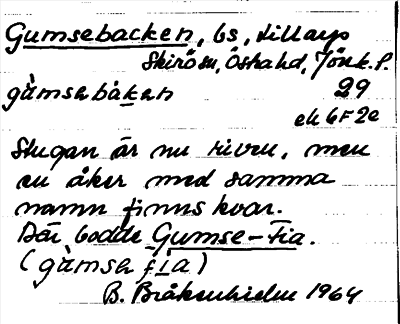 Gumsebacken, bs, Lillarp
Skirö sn, Östra hd, Jönk. l.
gàmsebàken 29
ek 6F2e
Stugan är nu riven, men
en åker med samma
namn finns kvar.
Där bodde Gumse-Fia.
(gàmse fia)
B. Bråkenhielm 1964